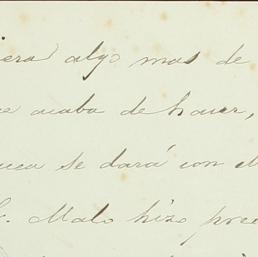 iera algo mas de
e acaba de hacer,
uca se dará con el
Malo hizo prec